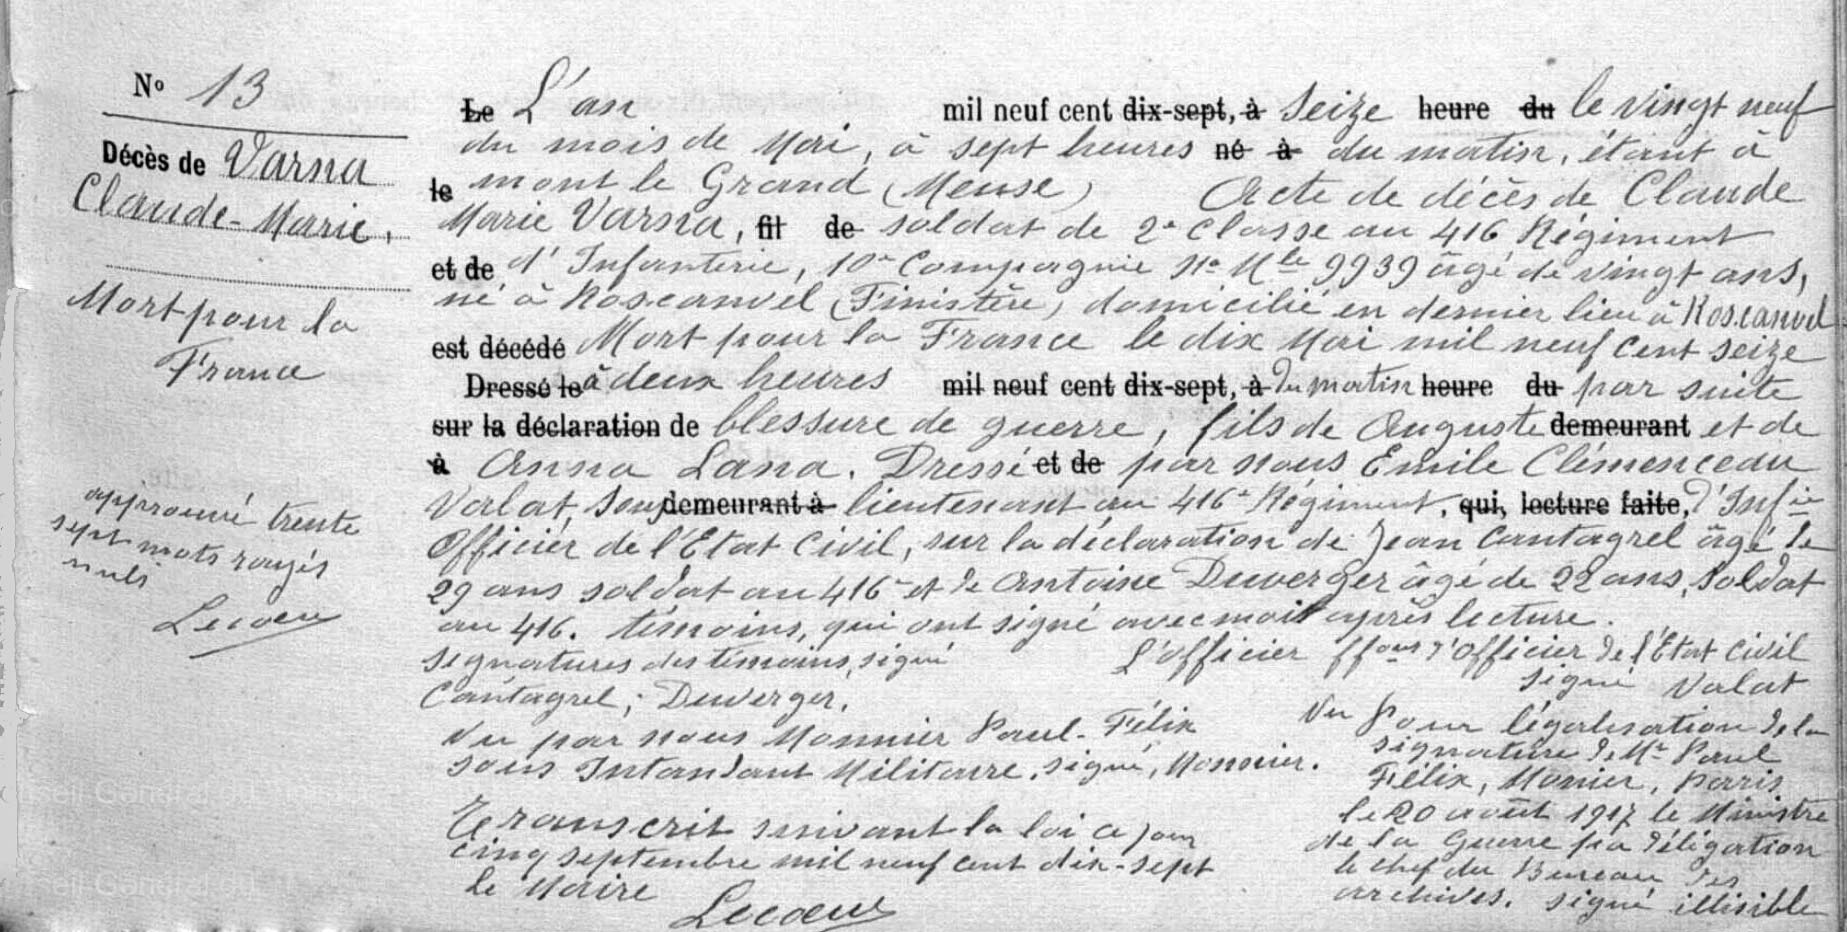 Nº 13
Décès de Varna
Claude-Marie,
Mort pour la
France
approuvé trente
sept mots rayés
nuls
Lecoeur
Le L'an mil neuf cent dix-sept, à seize heure du le vingt neuf
du mois de Mai, à sept heures né à du matin, étant à
le mont le Grand (Meuse) Acte de décès de Claude
Marie Varna, fil de soldat de 2e classe au 416 Régiment
et de d'Infanterie, 10e Compagnie No Mle 9939 âgé de vingt ans,
né à Roscanvel (Finistère) domicilié en dernier lieu à Roscanvel
est décédé Mort pour la France le dix Mai mil neuf cent seize
Dressé le à deux heures mil neuf cent dix-sept, à du matin heure du par suite
sur la déclaration de blessure de guerre, fils de Auguste demeurant et de
à Anna Lana. Dressé et de par nous Emile Clémenceau
Valat, Sous demeurant à lieutenant au 416e Régiment, qui, lecture faite, d'Infie
Officier de l'Etat Civil, sur la déclaration de Jean Cantagrel âgé de
29 ans soldat au 416e et de Antoine Duverger âgé de 22 ans, soldat
au 416. témoins, qui ont signé avec moi après lecture.
signatures des témoins, signé L'officier ffons d'Officier de l'Etat Civil
Cantagrel; Duverger. signé Valat
Vu par nous Monnier Paul-Félix
sous Intendant Militaire, signé, Monnier.
Vu pour légalisation de la
signature de Mr Paul
Félix, Monier, Paris
le 20 août 1917 le Ministre
de la Guerre pa délégation
le chef du Bureau des
archives. signé illisible
Transcrit suivant la loi ce jour
cinq septembre mil neuf cent dix-sept
le Maire
Lecoeur